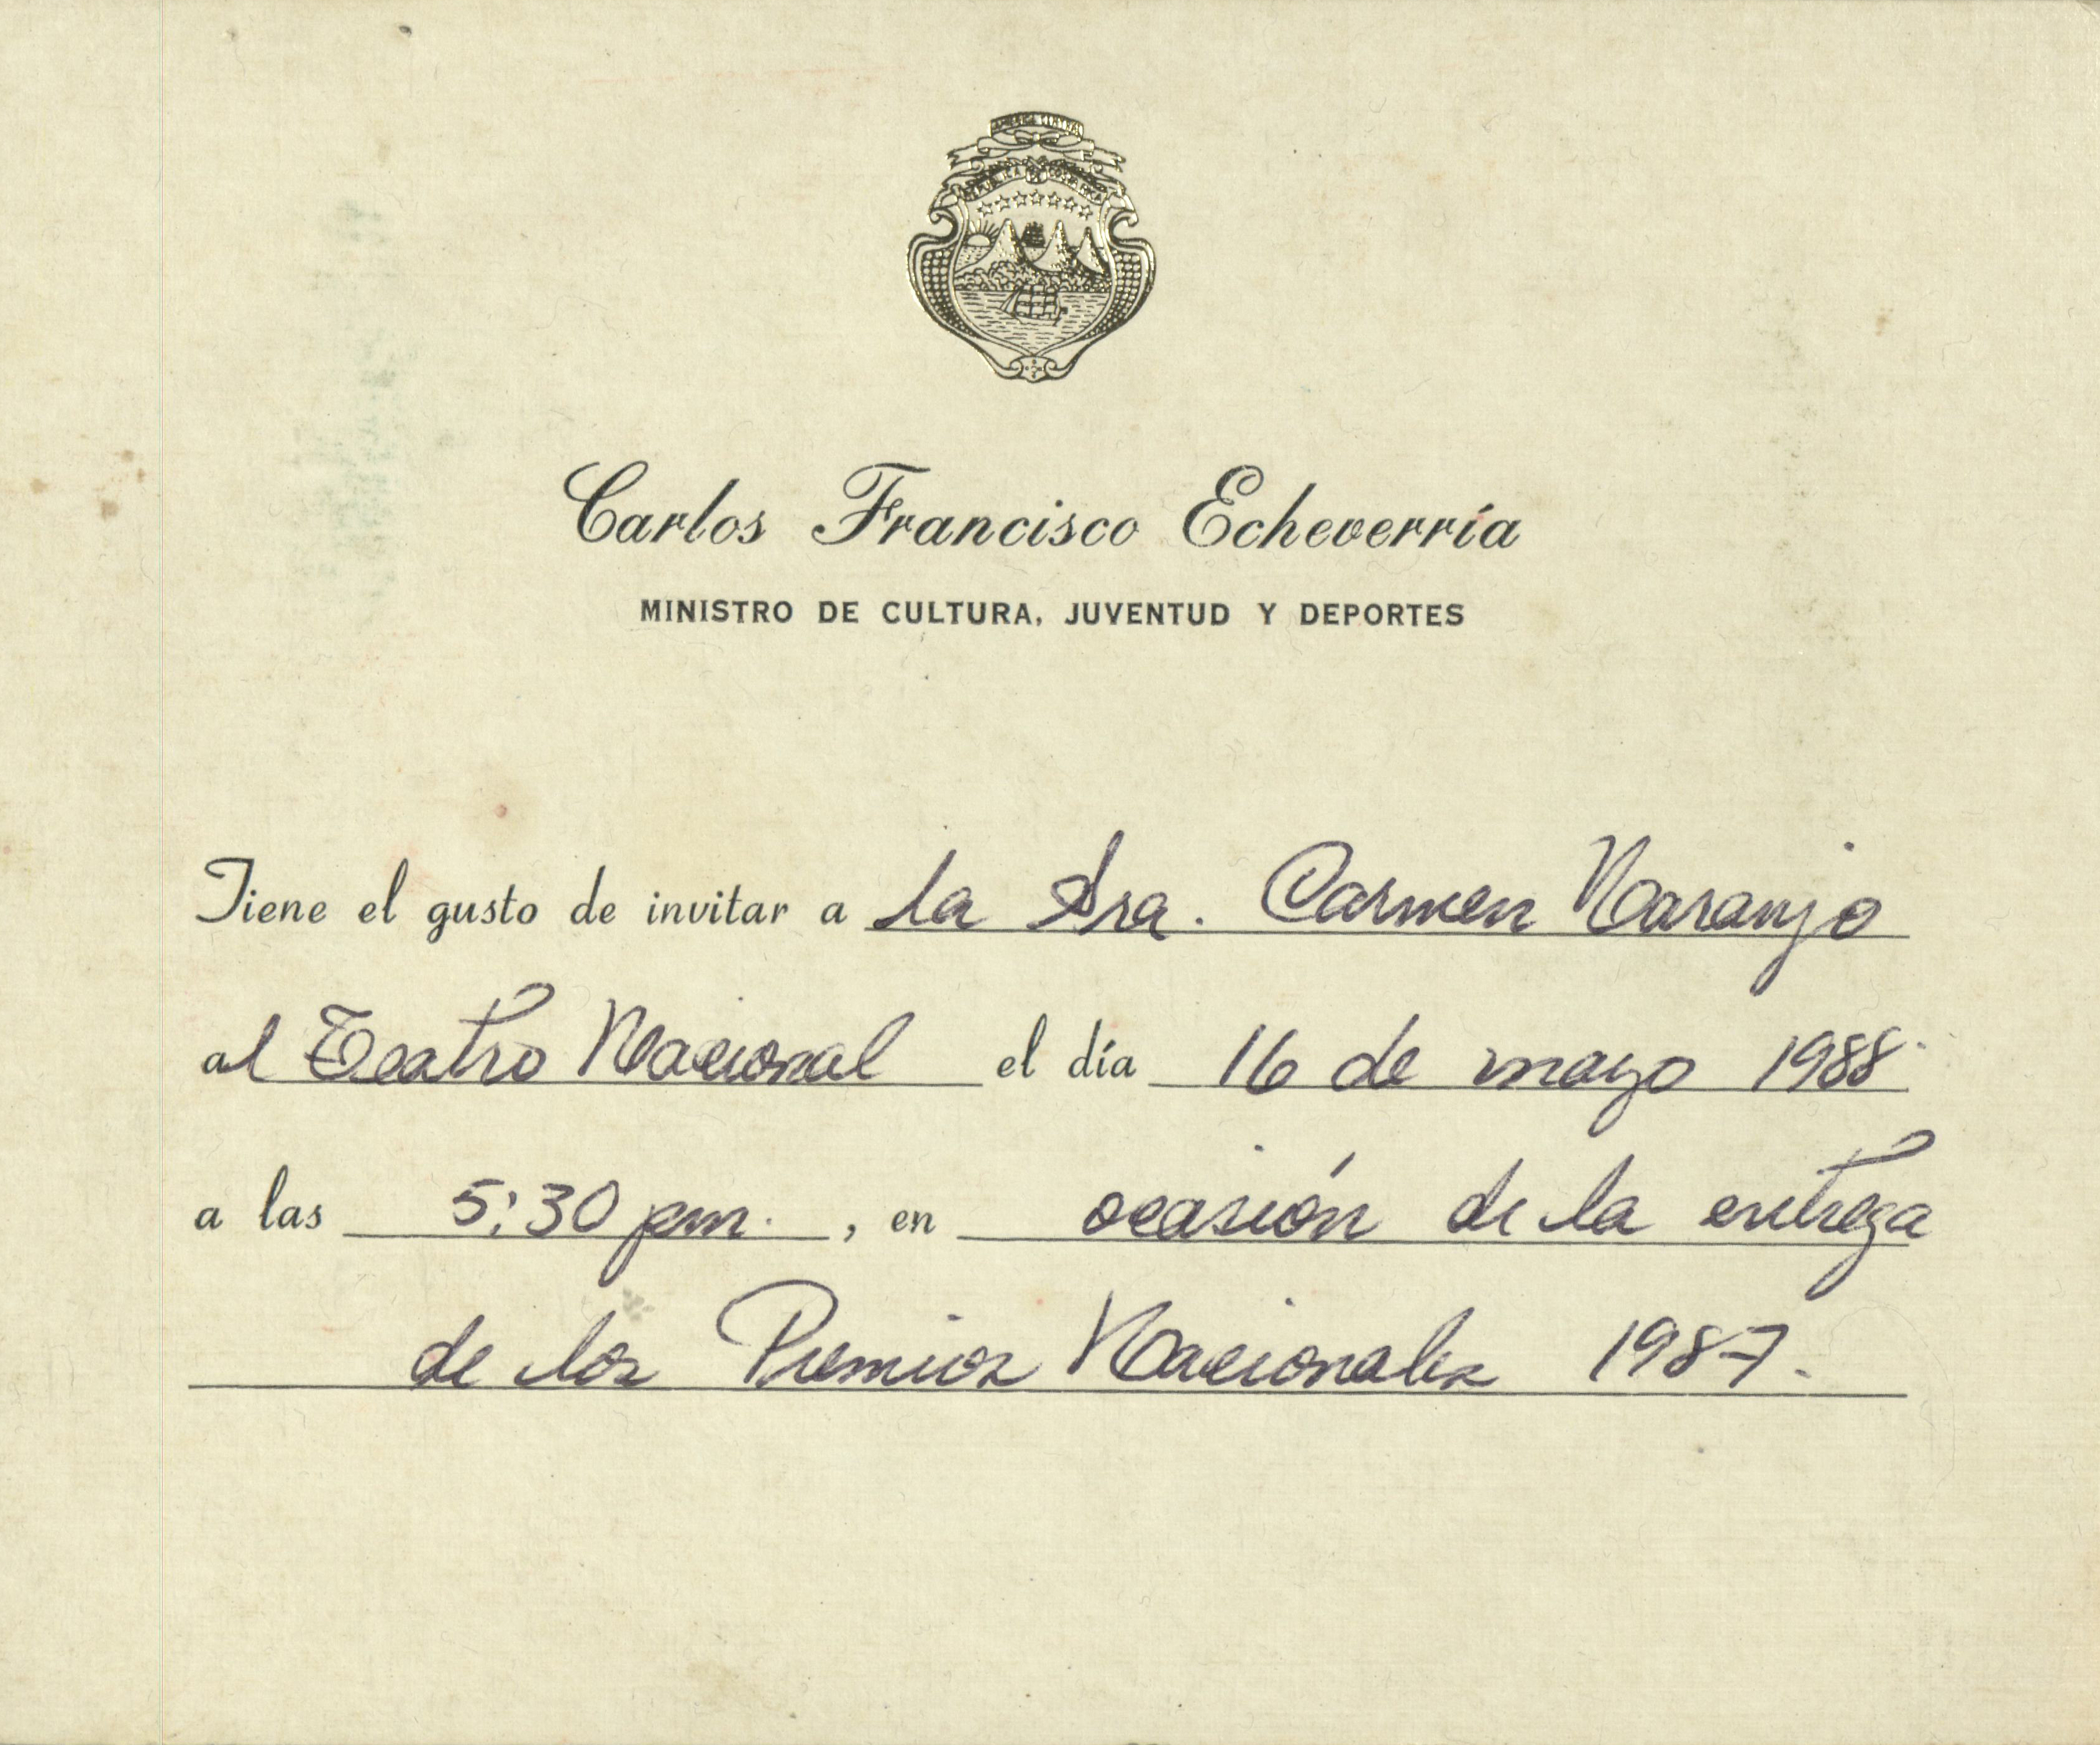 AMERICA CENTRAL
Carlos Francisco Echeverría
MINISTRO DE CULTURA, JUVENTUD Y DEPORTES
Tiene el gusto de invitar a la Sra. Carmen Naranjo
al Teatro Nacional el día 16 de mayo 1988.
a las 5:30 pm. , en ocasión de la entrega
de los Premios Nacionales 1987.